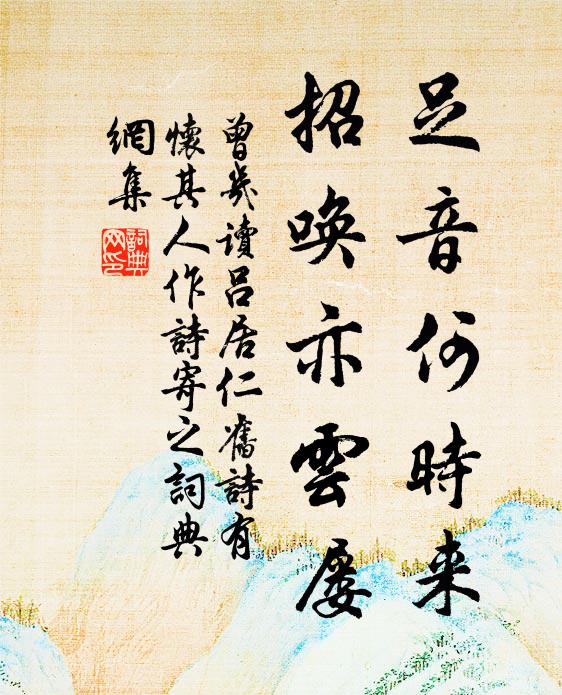 足音何時来
招唤亦雲屡
曾幾讀呂居仁舊詩有
懷其人作詩寄之詞典
網集
詞典網印